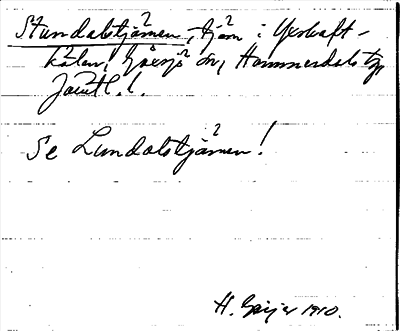 Stundalstjämen, tjärn i Yxskaft-
kälen, Gåxsjö sn, Hammerdals tg
Jämtl. l.
Se Lundalstjämen!
H. Geijer 1910.